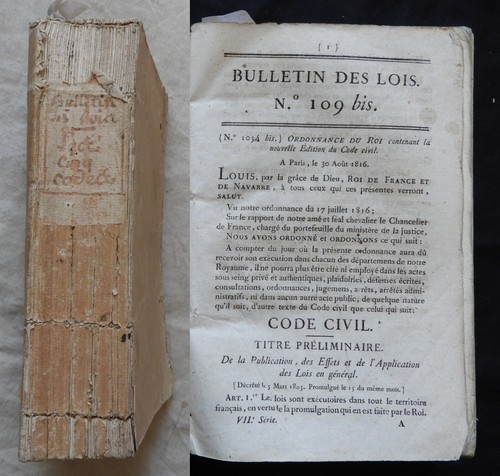 Bulletin
( 1 )
BULLETIN DES LOIS.
N.º 109 bis.
(N.º 1034 bis.) ORDONNANCE DU ROI contenant la
nouvelle Édition du Code civil.
A Paris, le 30 Août 1816.
LOUIS, par la grâce de Dieu, ROI DE FRANCE ET
DE NAVARRE, à tous ceux qui ces présentes verront,
SALUT.
Vu notre ordonnance du 17 juillet 1816;
Sur le rapport de notre amé et féal chevalier le Chancelier
de France, chargé du portefeuille du ministère de la justice,
NOUS AVONS ORDONNÉ et ORDONNONS ce qui suit:
A compter du jour où la présente ordonnance aura dû
recevoir son exécution dans chacun des départemens de notre
Royaume, il ne pourra plus être cité ni employé dans les actes
sous seing privé et authentiques, plaidoiries, défenses écrites,
consultations, ordonnances, jugemens, arrêts, arrêtés admi-
nistratifs, ni dans aucun autre acte public, de quelque nature
qu'il soit, d'autre texte du Code civil que celui qui suit:
CODE CIVIL.
TITRE PRÉLIMINAIRE.
De la Publication, des Effets et de l'Application
des Lois en général.
[Décrété le 5 Mars 1803. Promulgué le 15 du même mois.]
ART. 1.er Les lois sont exécutoires dans tout le territoire
français, en vertu de la promulgation qui en est faite par le Roi.
VII.e Série. A